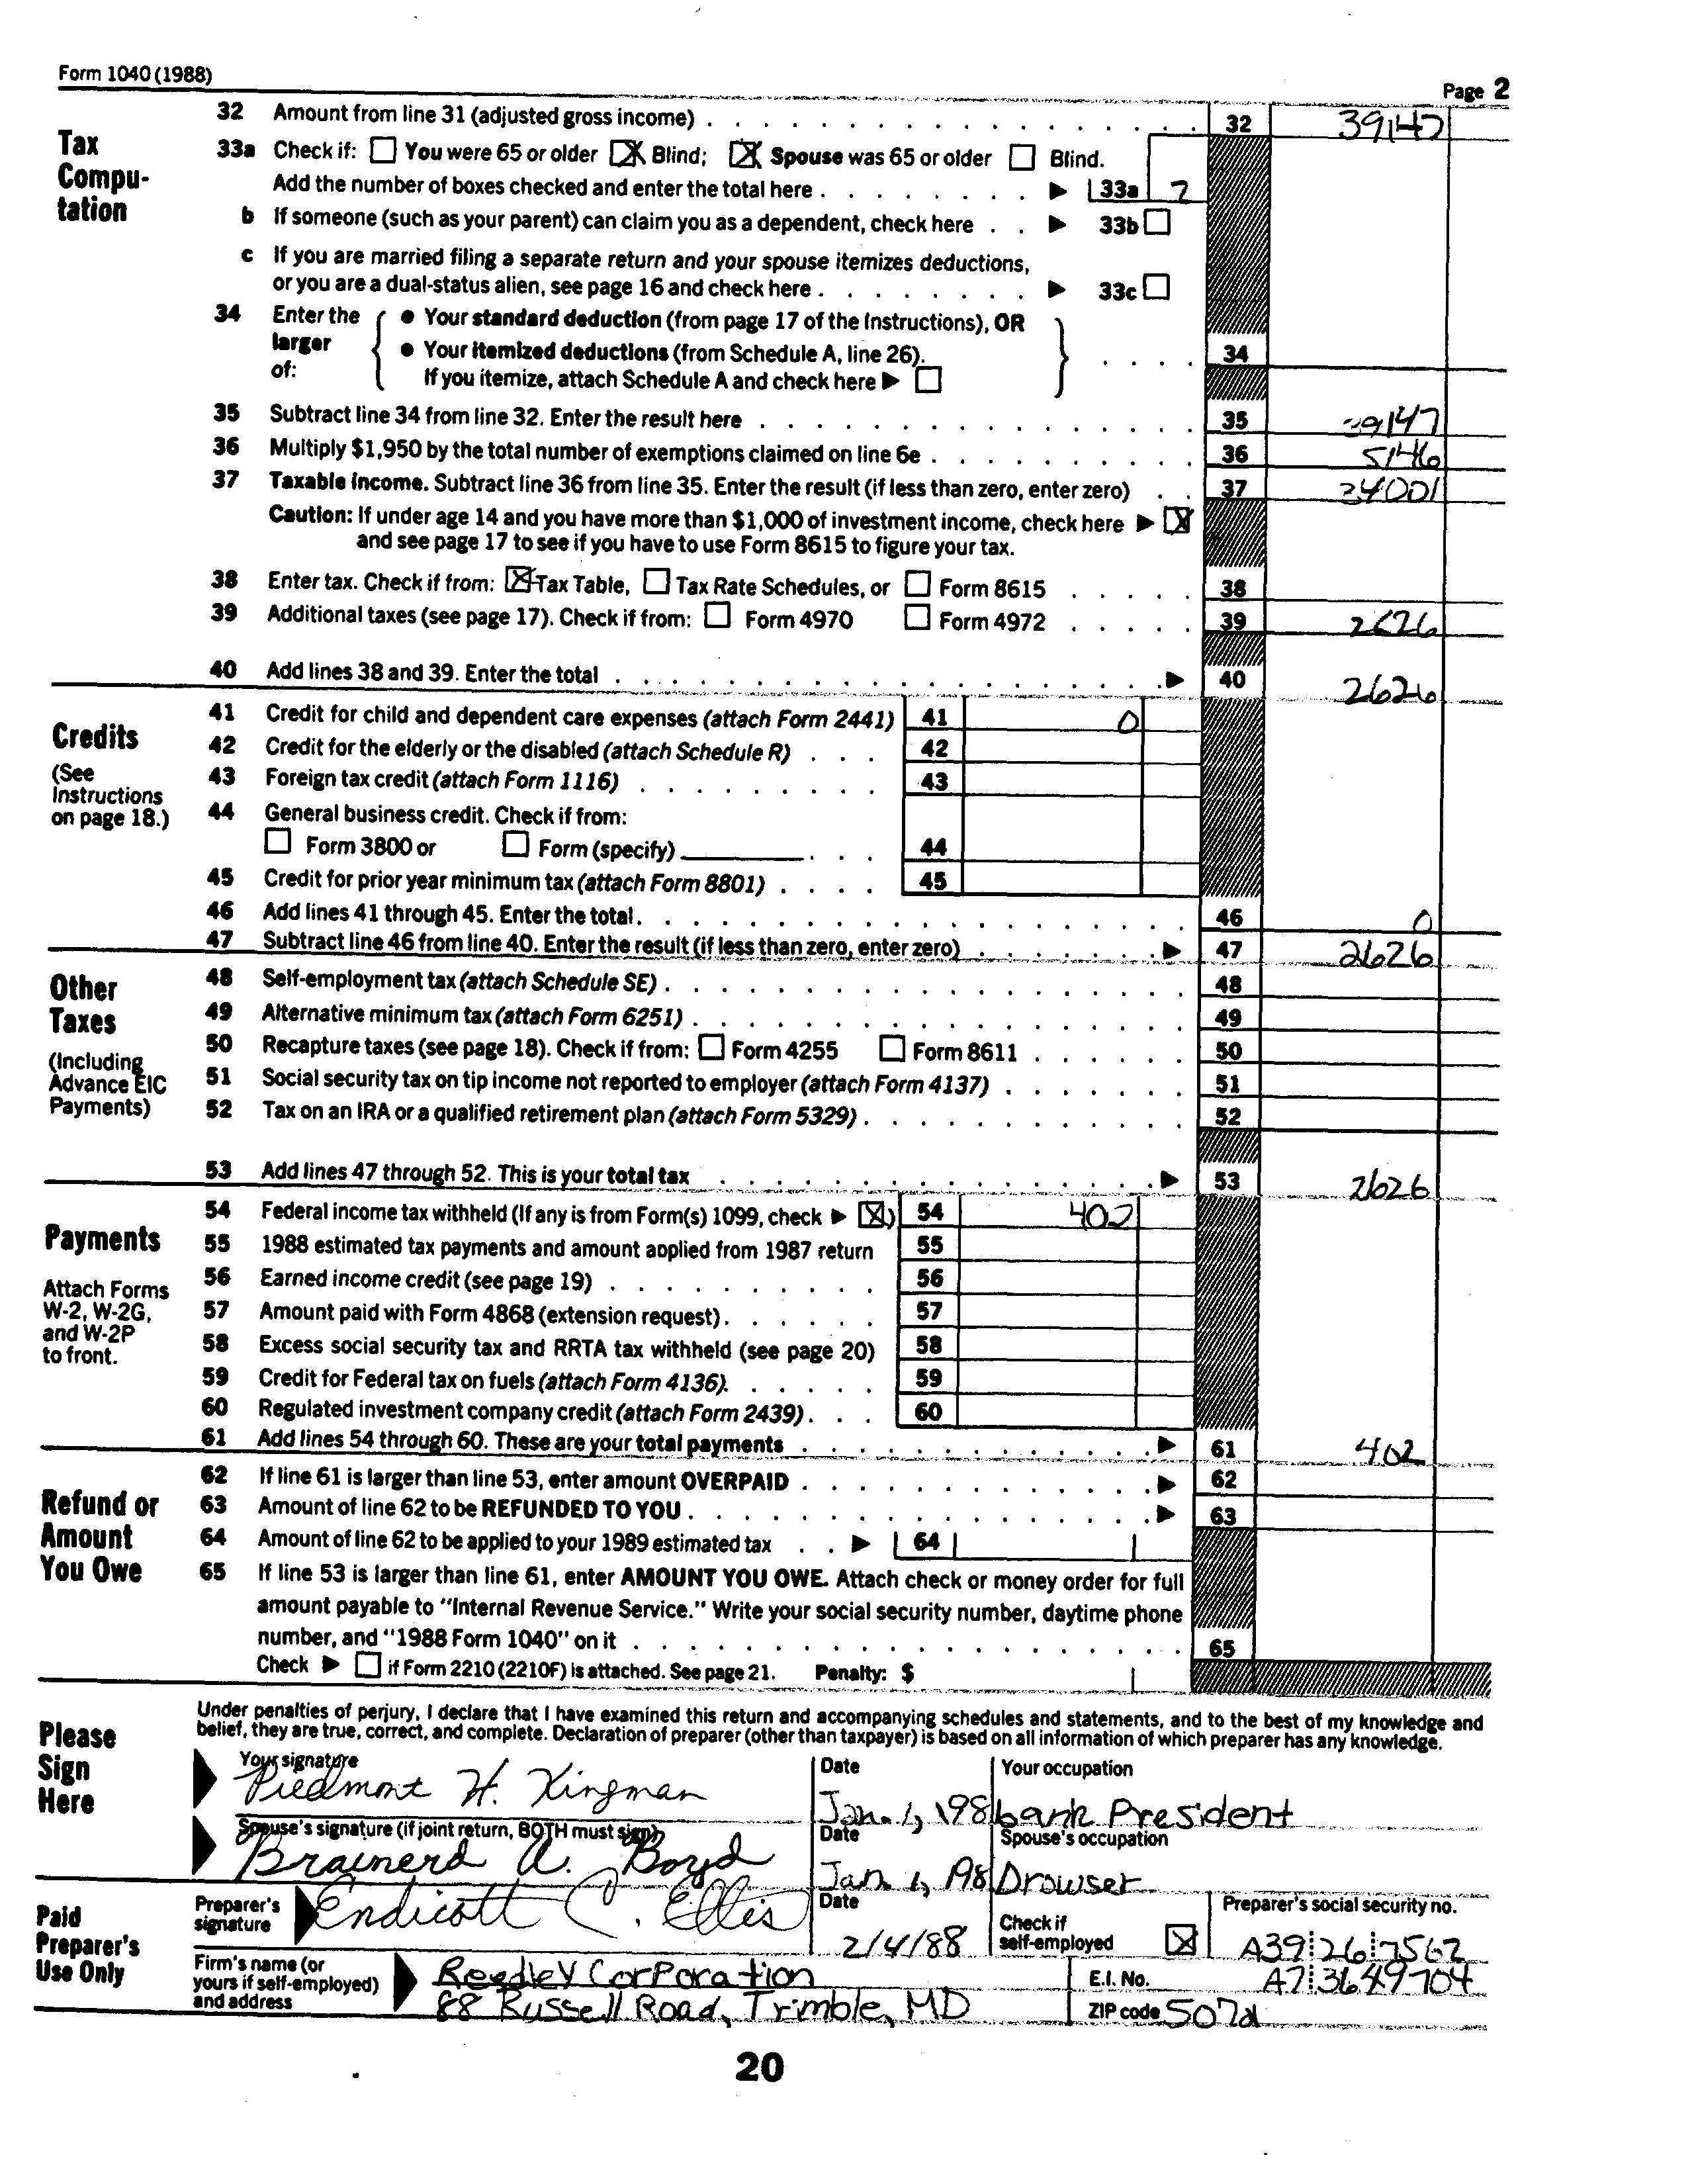 Form 1040 (1988)
Page 2
Tax Compu-tation
32 Amount from line 31 (adjusted gross income) . . . 32 39147
33a Check if: You were 65 or older Blind; Spouse was 65 or older Blind.
Add the number of boxes checked and enter the total here . . . 33a 2
b If someone (such as your parent) can claim you as a dependent, check here . . 33b
c If you are married filing a separate return and your spouse itemizes deductions,
or you are a dual-status alien, see page 16 and check here . . . 33c
34 Enter the larger of:
• Your standard deduction (from page 17 of the Instructions), OR
• Your itemized deductions (from Schedule A, line 26).
If you itemize, attach Schedule A and check here
34
35 Subtract line 34 from line 32. Enter the result here . . . 35 39147
36 Multiply $1,950 by the total number of exemptions claimed on line 6e . . . 36 5146
37 Taxable income. Subtract line 36 from line 35. Enter the result (if less than zero, enter zero) . . 37 34001
Caution: If under age 14 and you have more than $1,000 of investment income, check here
and see page 17 to see if you have to use Form 8615 to figure your tax.
38 Enter tax. Check if from: Tax Table, Tax Rate Schedules, or Form 8615 . . . 38
39 Additional taxes (see page 17). Check if from: Form 4970 Form 4972 . . . 39 2626
40 Add lines 38 and 39. Enter the total . . . 40 2626
Credits
(See Instructions on page 18.)
41 Credit for child and dependent care expenses (attach Form 2441) 41 0
42 Credit for the elderly or the disabled (attach Schedule R) . . . 42
43 Foreign tax credit (attach Form 1116) . . . 43
44 General business credit. Check if from:
Form 3800 or Form (specify) . . . 44
45 Credit for prior year minimum tax (attach Form 8801) . . . 45
46 Add lines 41 through 45. Enter the total . . . 46 0
47 Subtract line 46 from line 40. Enter the result (if less than zero, enter zero) . . . 47 2626
Other Taxes
(Including Advance EIC Payments)
48 Self-employment tax (attach Schedule SE) . . . 48
49 Alternative minimum tax (attach Form 6251) . . . 49
50 Recapture taxes (see page 18). Check if from: Form 4255 Form 8611 . . . 50
51 Social security tax on tip income not reported to employer (attach Form 4137) . . . 51
52 Tax on an IRA or a qualified retirement plan (attach Form 5329) . . . 52
53 Add lines 47 through 52. This is your total tax . . . 53 2626
Payments
Attach Forms W-2, W-2G, and W-2P to front.
54 Federal income tax withheld (If any is from Form(s) 1099, check ) 54 402
55 1988 estimated tax payments and amount applied from 1987 return 55
56 Earned income credit (see page 19) . . . 56
57 Amount paid with Form 4868 (extension request) . . . 57
58 Excess social security tax and RRTA tax withheld (see page 20) 58
59 Credit for Federal tax on fuels (attach Form 4136) . . . 59
60 Regulated investment company credit (attach Form 2439) . . . 60
61 Add lines 54 through 60. These are your total payments . . . 61 402
Refund or Amount You Owe
62 If line 61 is larger than line 53, enter amount OVERPAID . . . 62
63 Amount of line 62 to be REFUNDED TO YOU . . . 63
64 Amount of line 62 to be applied to your 1989 estimated tax . . 64
65 If line 53 is larger than line 61, enter AMOUNT YOU OWE. Attach check or money order for full
amount payable to "Internal Revenue Service." Write your social security number, daytime phone
number, and "1988 Form 1040" on it . . . 65
Check if Form 2210 (2210F) is attached. See page 21. Penalty: $
Please Sign Here
Under penalties of perjury, I declare that I have examined this return and accompanying schedules and statements, and to the best of my knowledge and
belief, they are true, correct, and complete. Declaration of preparer (other than taxpayer) is based on all information of which preparer has any knowledge.
Your signature Date Your occupation
Piedmont H. Kingman Jan. 1, 198 bank President
Spouse's signature (if joint return, BOTH must sign) Date Spouse's occupation
Brainerd A. Boyd Jan 1, 198 Drowser
Paid Preparer's Use Only
Preparer's signature Endicott C. Ellis Date 2/4/88 Check if self-employed Preparer's social security no. A39 26 7562
Firm's name (or yours if self-employed) and address
Reedley Corporation E.I. No. A7 3649704
88 Russell Road, Trimble, MD ZIP code
20